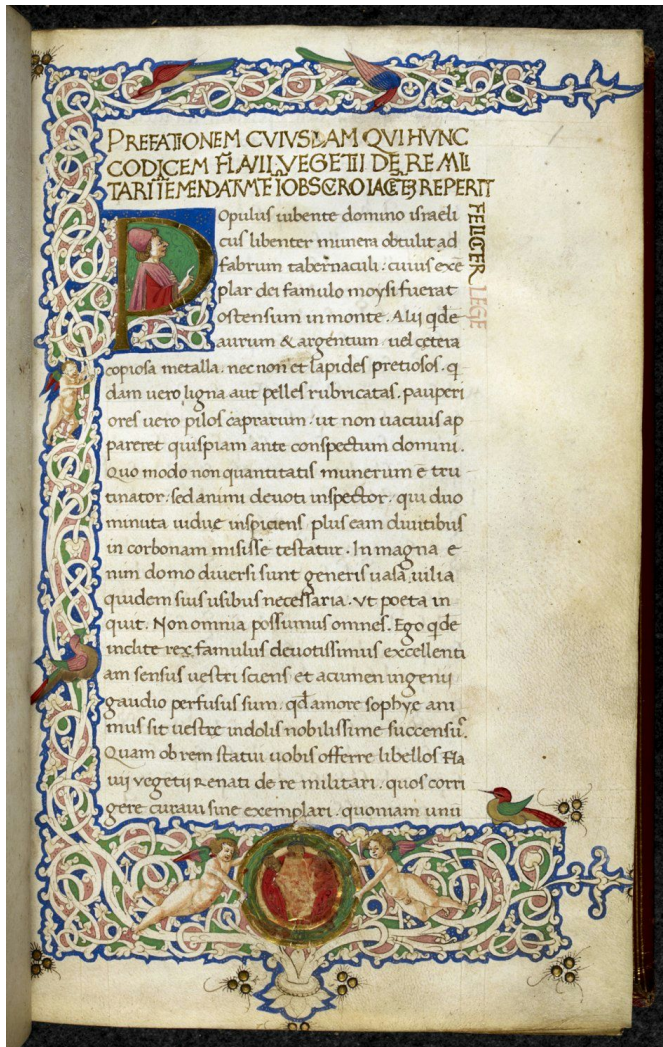 PREFATIONEM CVIVSDAM QVI HVNC
CODICEM FLAVII VEGETII DE RE MILI
TARI
REPERIT
FELICITER LEGE
Populus iubente domino israeli
cus libenter munera obtulit ad
fabrum tabernaculi : cuius exē
plar dei famulo moysi fuerat
ostensum in monte . Alij qde
aurum & argentum . uel cetera
copiosa metalla . nec non et lapides pretiosos . q
dam uero ligna aut pelles rubricatas . pauperi
ores uero pilos caprarum . ut non uacuus ap
pareret quispiam ante conspectum domini .
Quo modo non quantitatis munerum ē tru
tinator . sed animi deuoti inspector . qui duo
minuta uidue inspiciens plus eam diuitibus
in corbonam misisse testatur . In magna e
nim domo diuersi sunt generis uasa , uilia
quidem suis usibus necessaria . Vt poeta in
quit . Non omnia possumus omnes . Ego qde
inclite rex famulus deuotissimus excellenti
am sensus uestri sciens et acumen ingenij
gaudio perfusus sum . qđ amore sophye ani
mus sit uestre indolis nobilissime succensū .
Quam ob rem statui uobis offerre libellos Fla
uij vegetij Renati de re militari . quos corri
gere curaui sine exemplari . quoniam unū